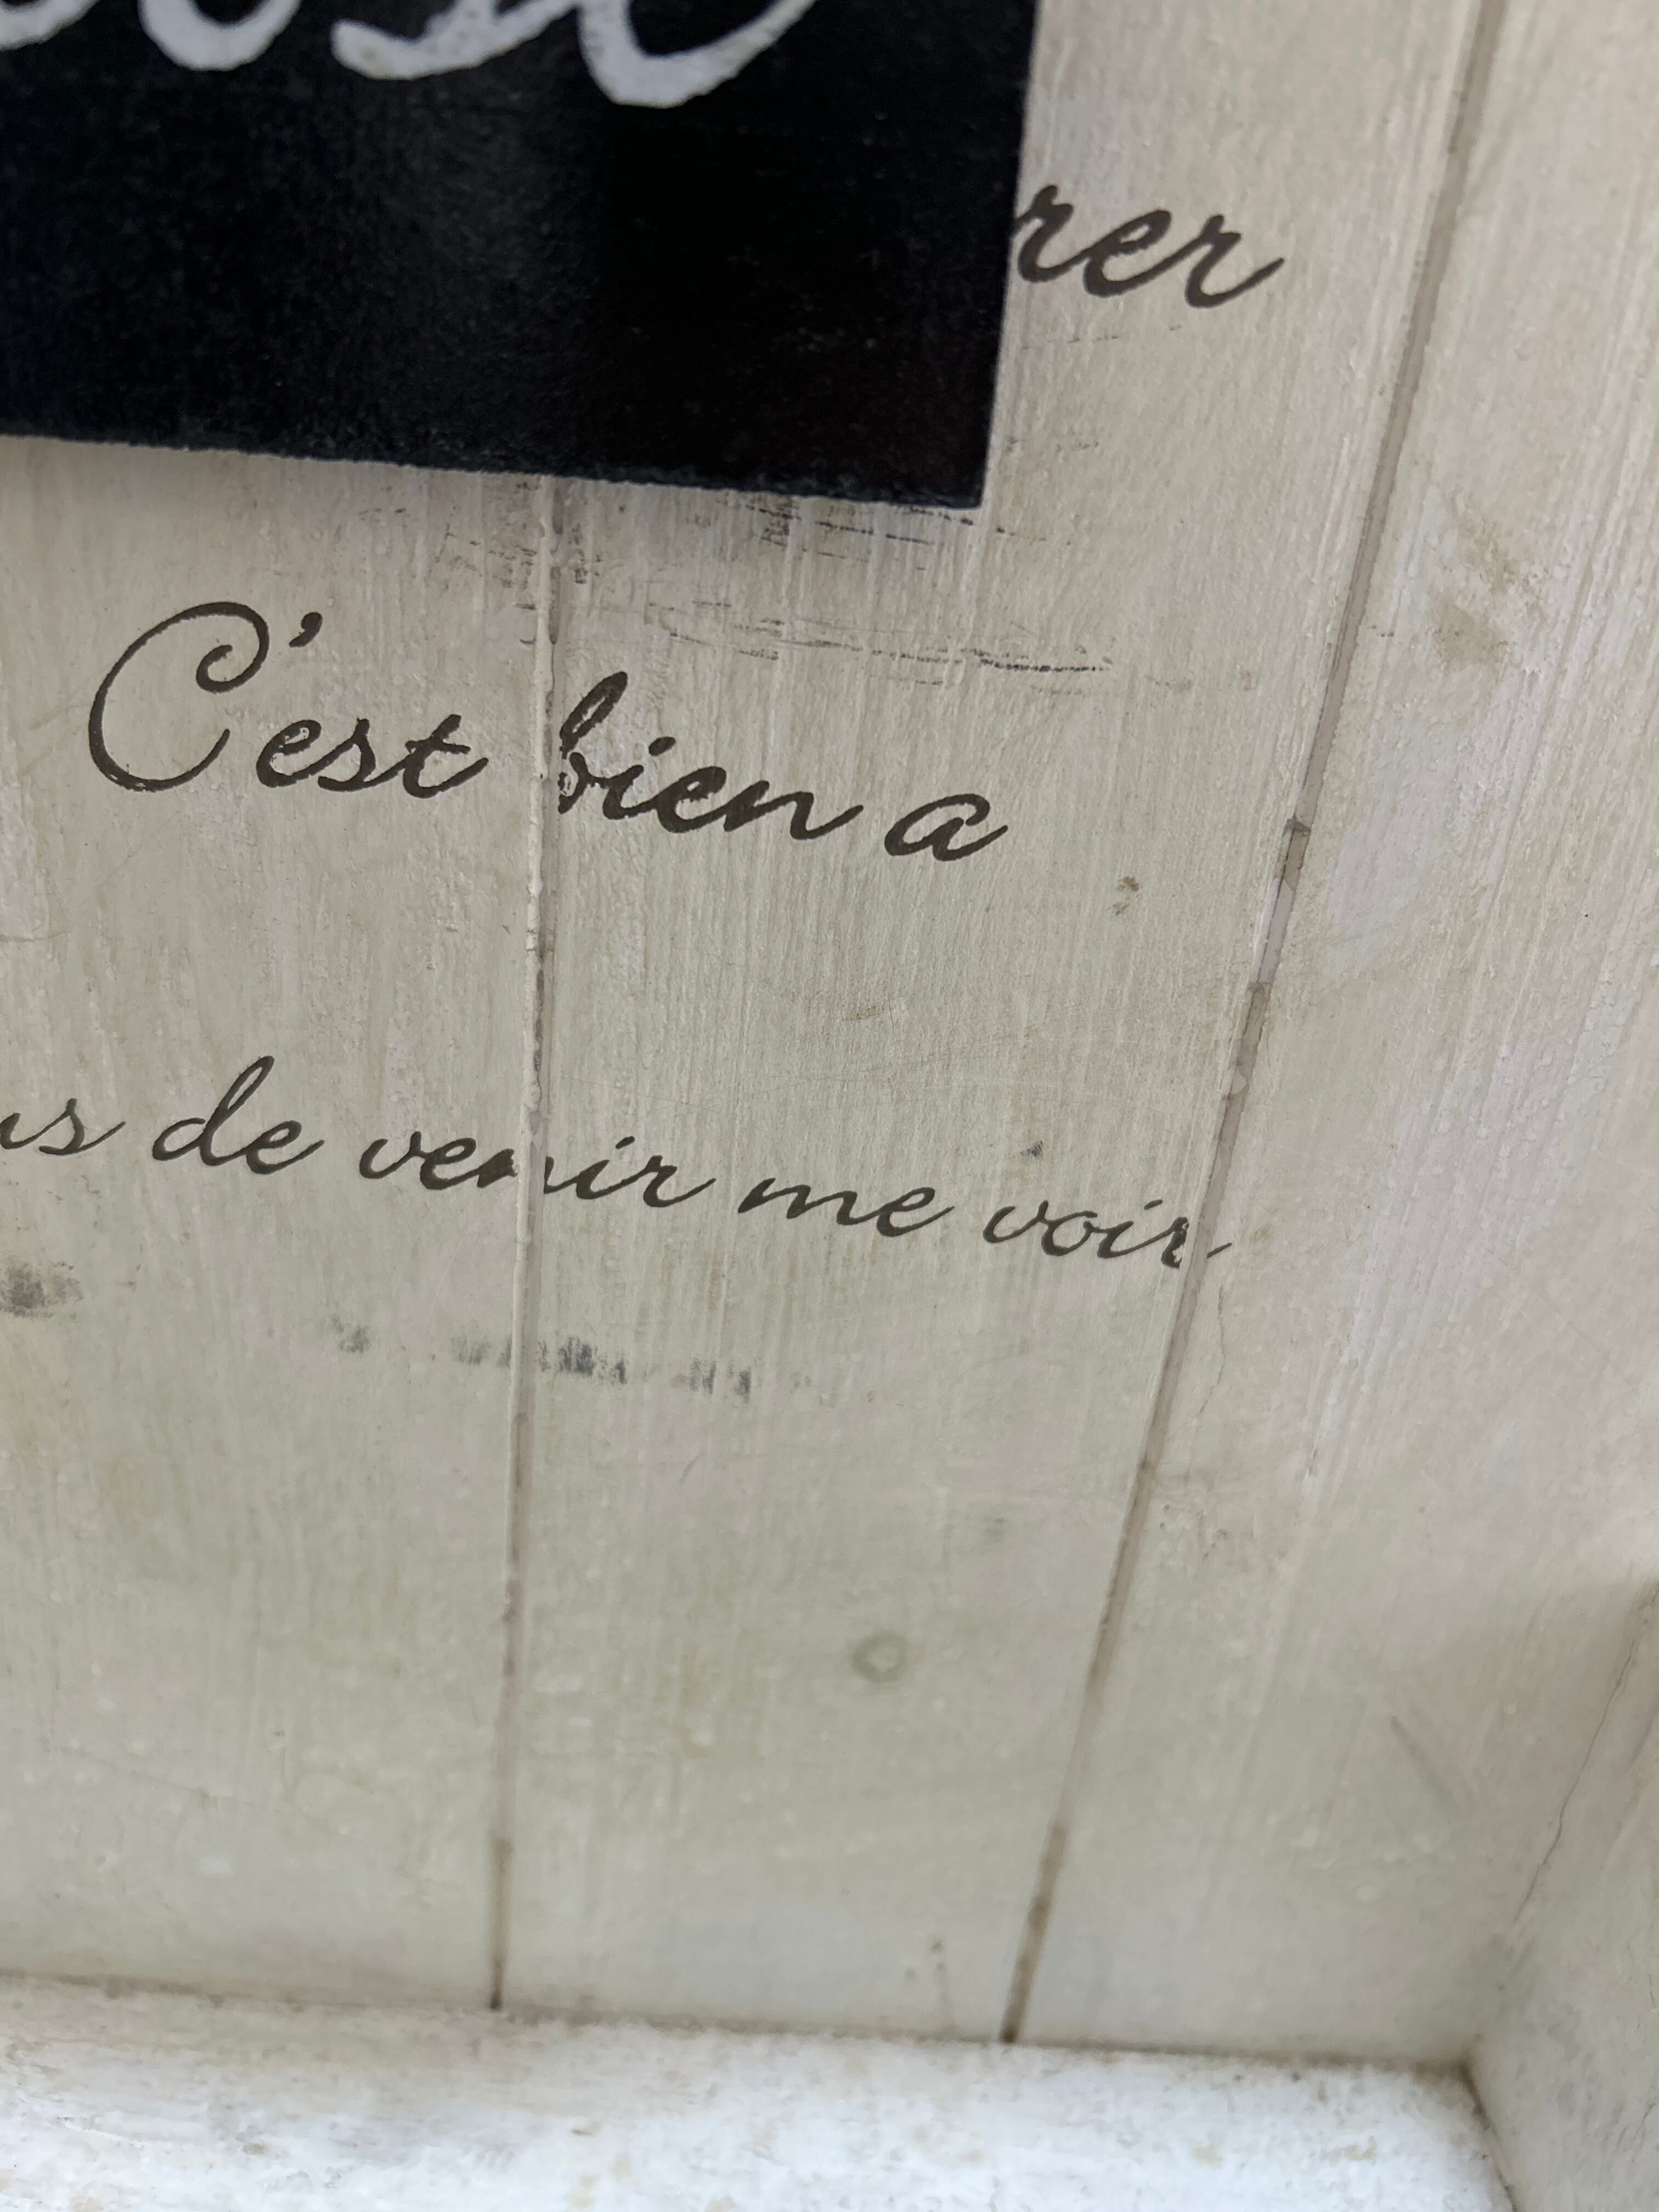 rer
C'est bien a
us de venir me voir